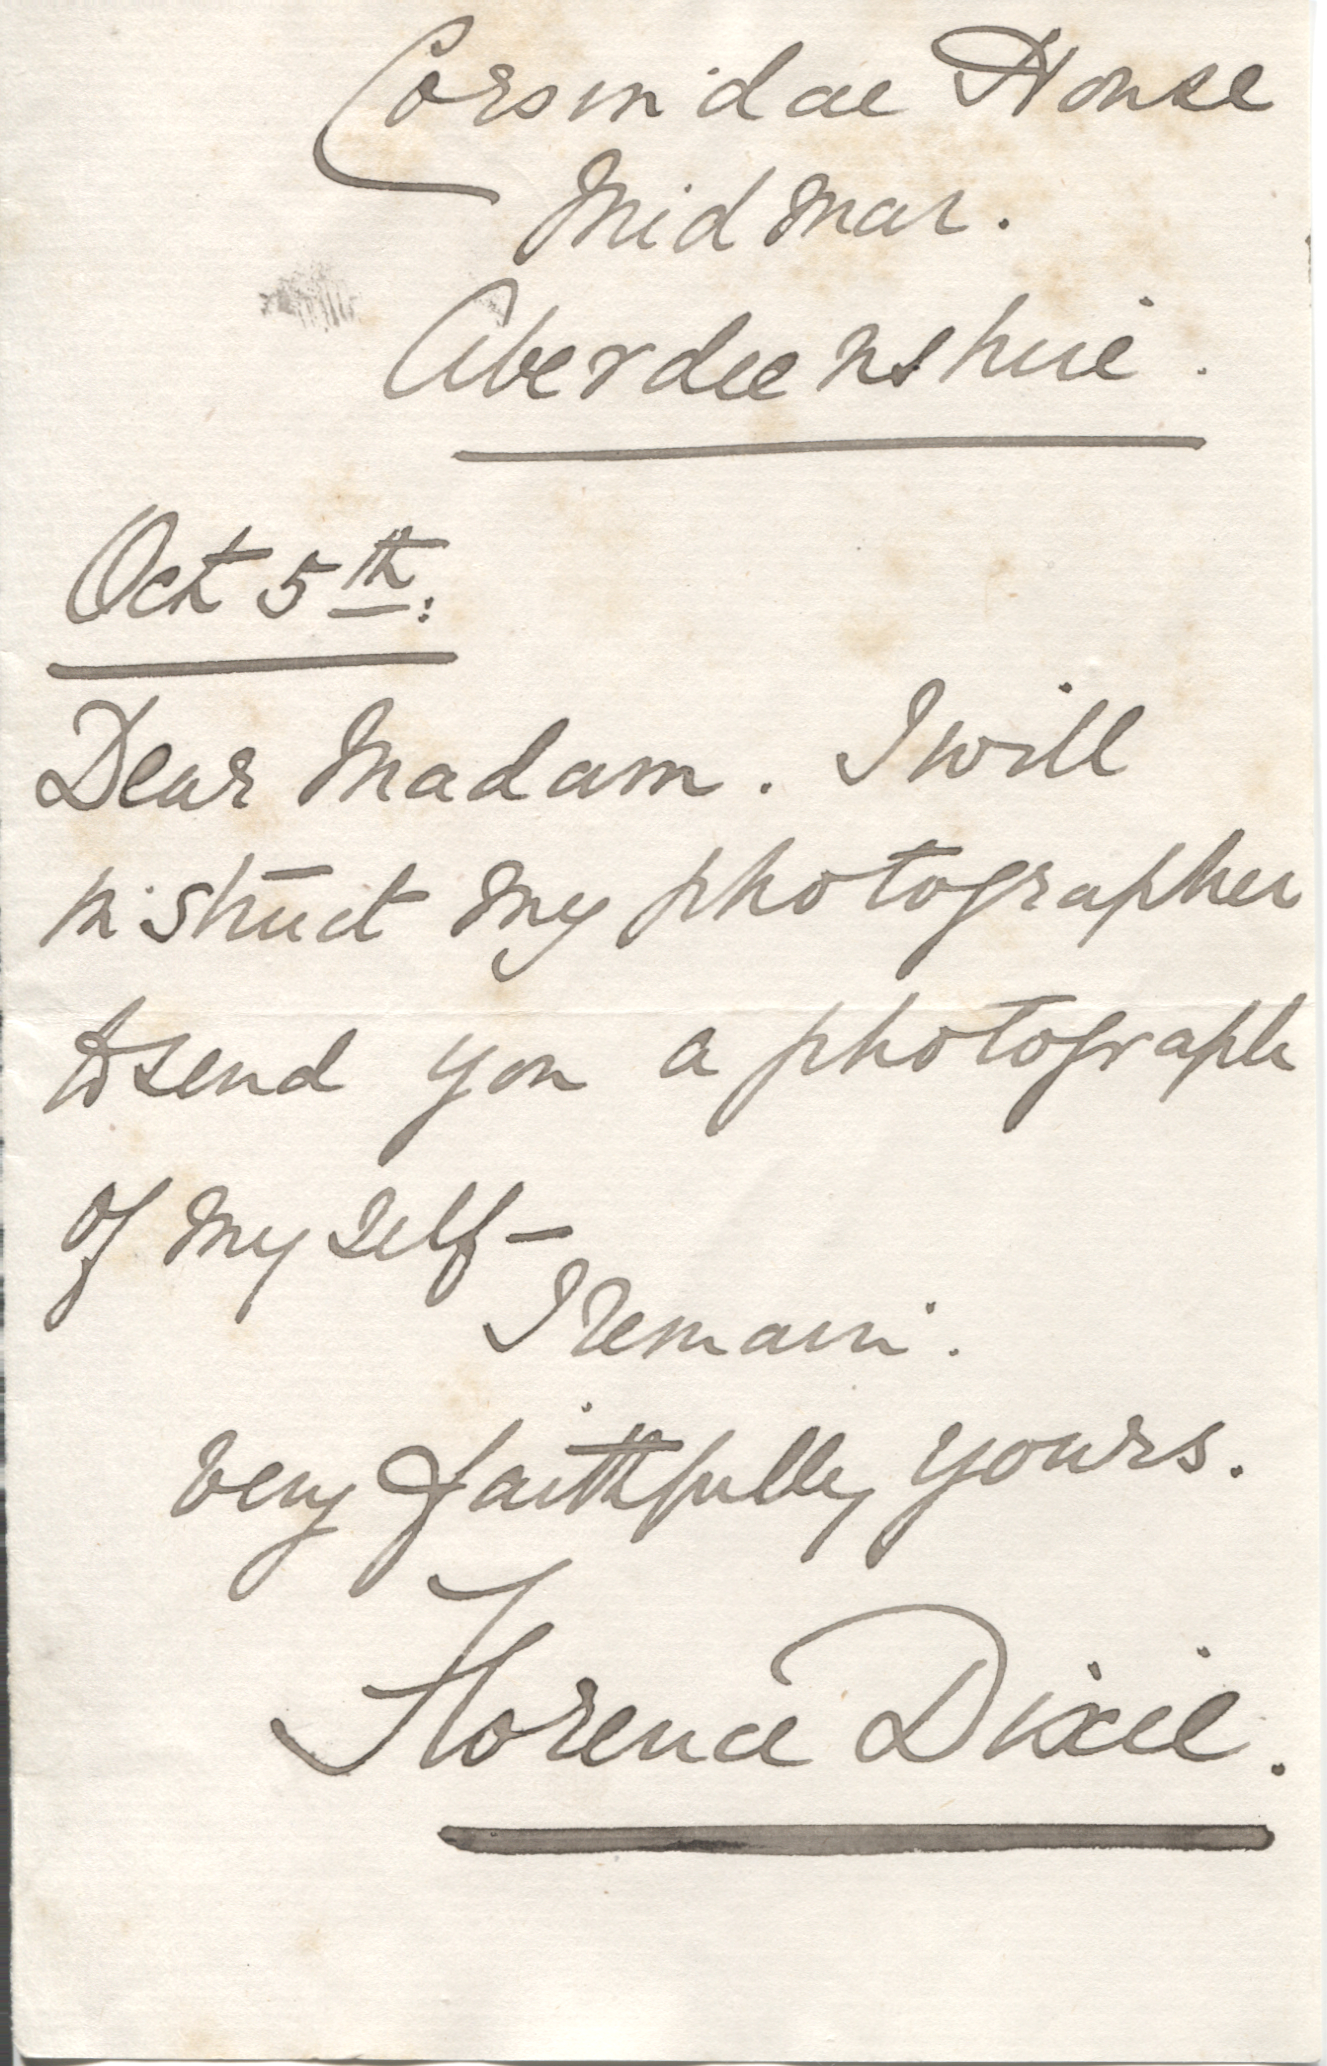 Corsindae House
Midmar.
Aberdeenshire.
Oct 5th.
Dear Madam. I will
instruct my photographer
to send you a photograph
of myself –
I remain.
very faithfully yours.
Florence Dixie.